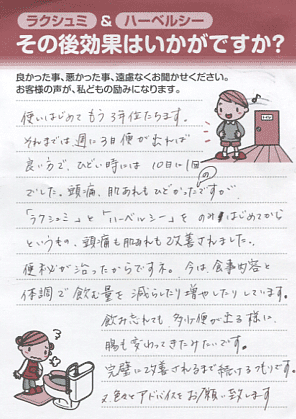 ラクシュミ & ハーベルシー
その後効果はいかがですか?
良かった事、悪かった事、遠慮なくお聞かせください。
お客様の声が、私どもの励みになります。
使いはじめて もう 3年位たちます。
それまでは 週に3日便があれば
良い方で、ひどい時には 10日に1回
でした。頭痛、肌あれも ひどかった(の)ですが
「ラクシュミ」と「ハーベルシー」を のみはじめてから
というもの、頭痛も肌あれも 改善されました。
便秘が治ったからですネ。今は、食事内容と
体調で飲む量を 減らしたり増やしたりしています。
飲み忘れても、多少便が出る様に、
腸も変わってきたみたいです。
完璧に改善されるまで続けるつもりです。
又、色々とアドバイスを お願い致します